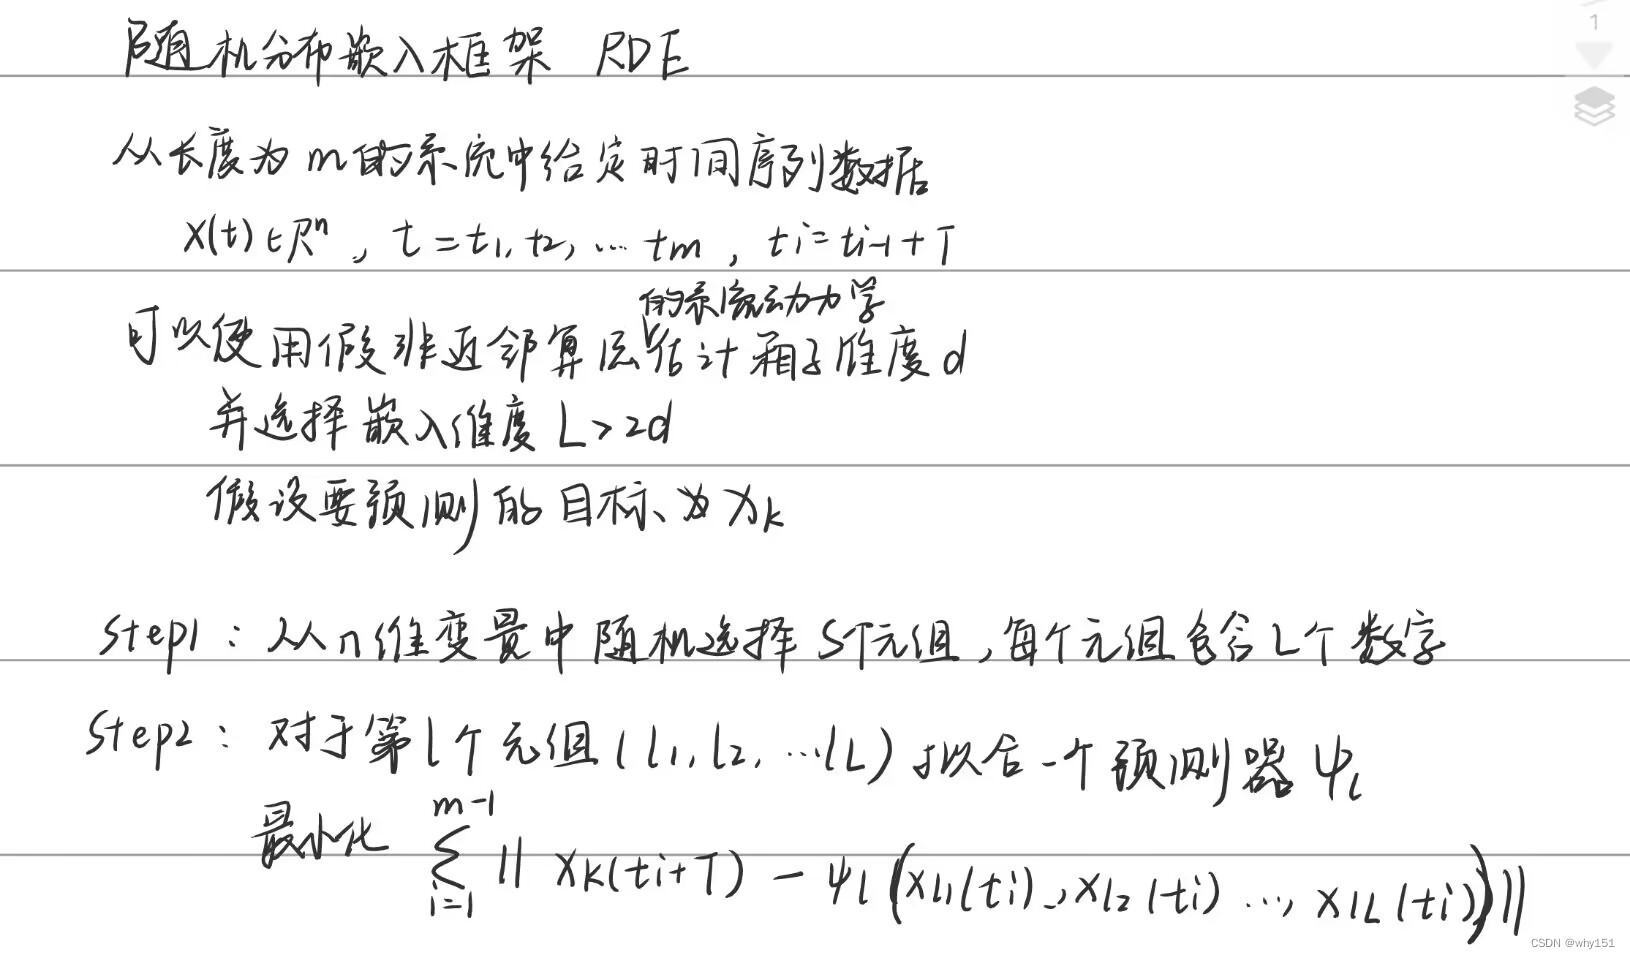 随机分布嵌入框架 RDE
1
从长度为m的系统中给定时间序列数据
X(t)∈Rⁿ, t=t1,t2,…tm, ti=ti-1+T
的系统动力学
可以使用假非近邻算法估计箱子维度d
并选择嵌入维度L>2d
假设要预测的目标为xk
Step1: 从n维变量中随机选择S个元组,每个元组包含L个数字
Step2: 对于第l个元组(l1,l2,…lL)拟合一个预测器ψl
最小化 ∑_{i=1}^{m-1} ||xk(ti+T) - ψl(xl1(ti),xl2(ti)…,xlL(ti))||
CSDN @why151